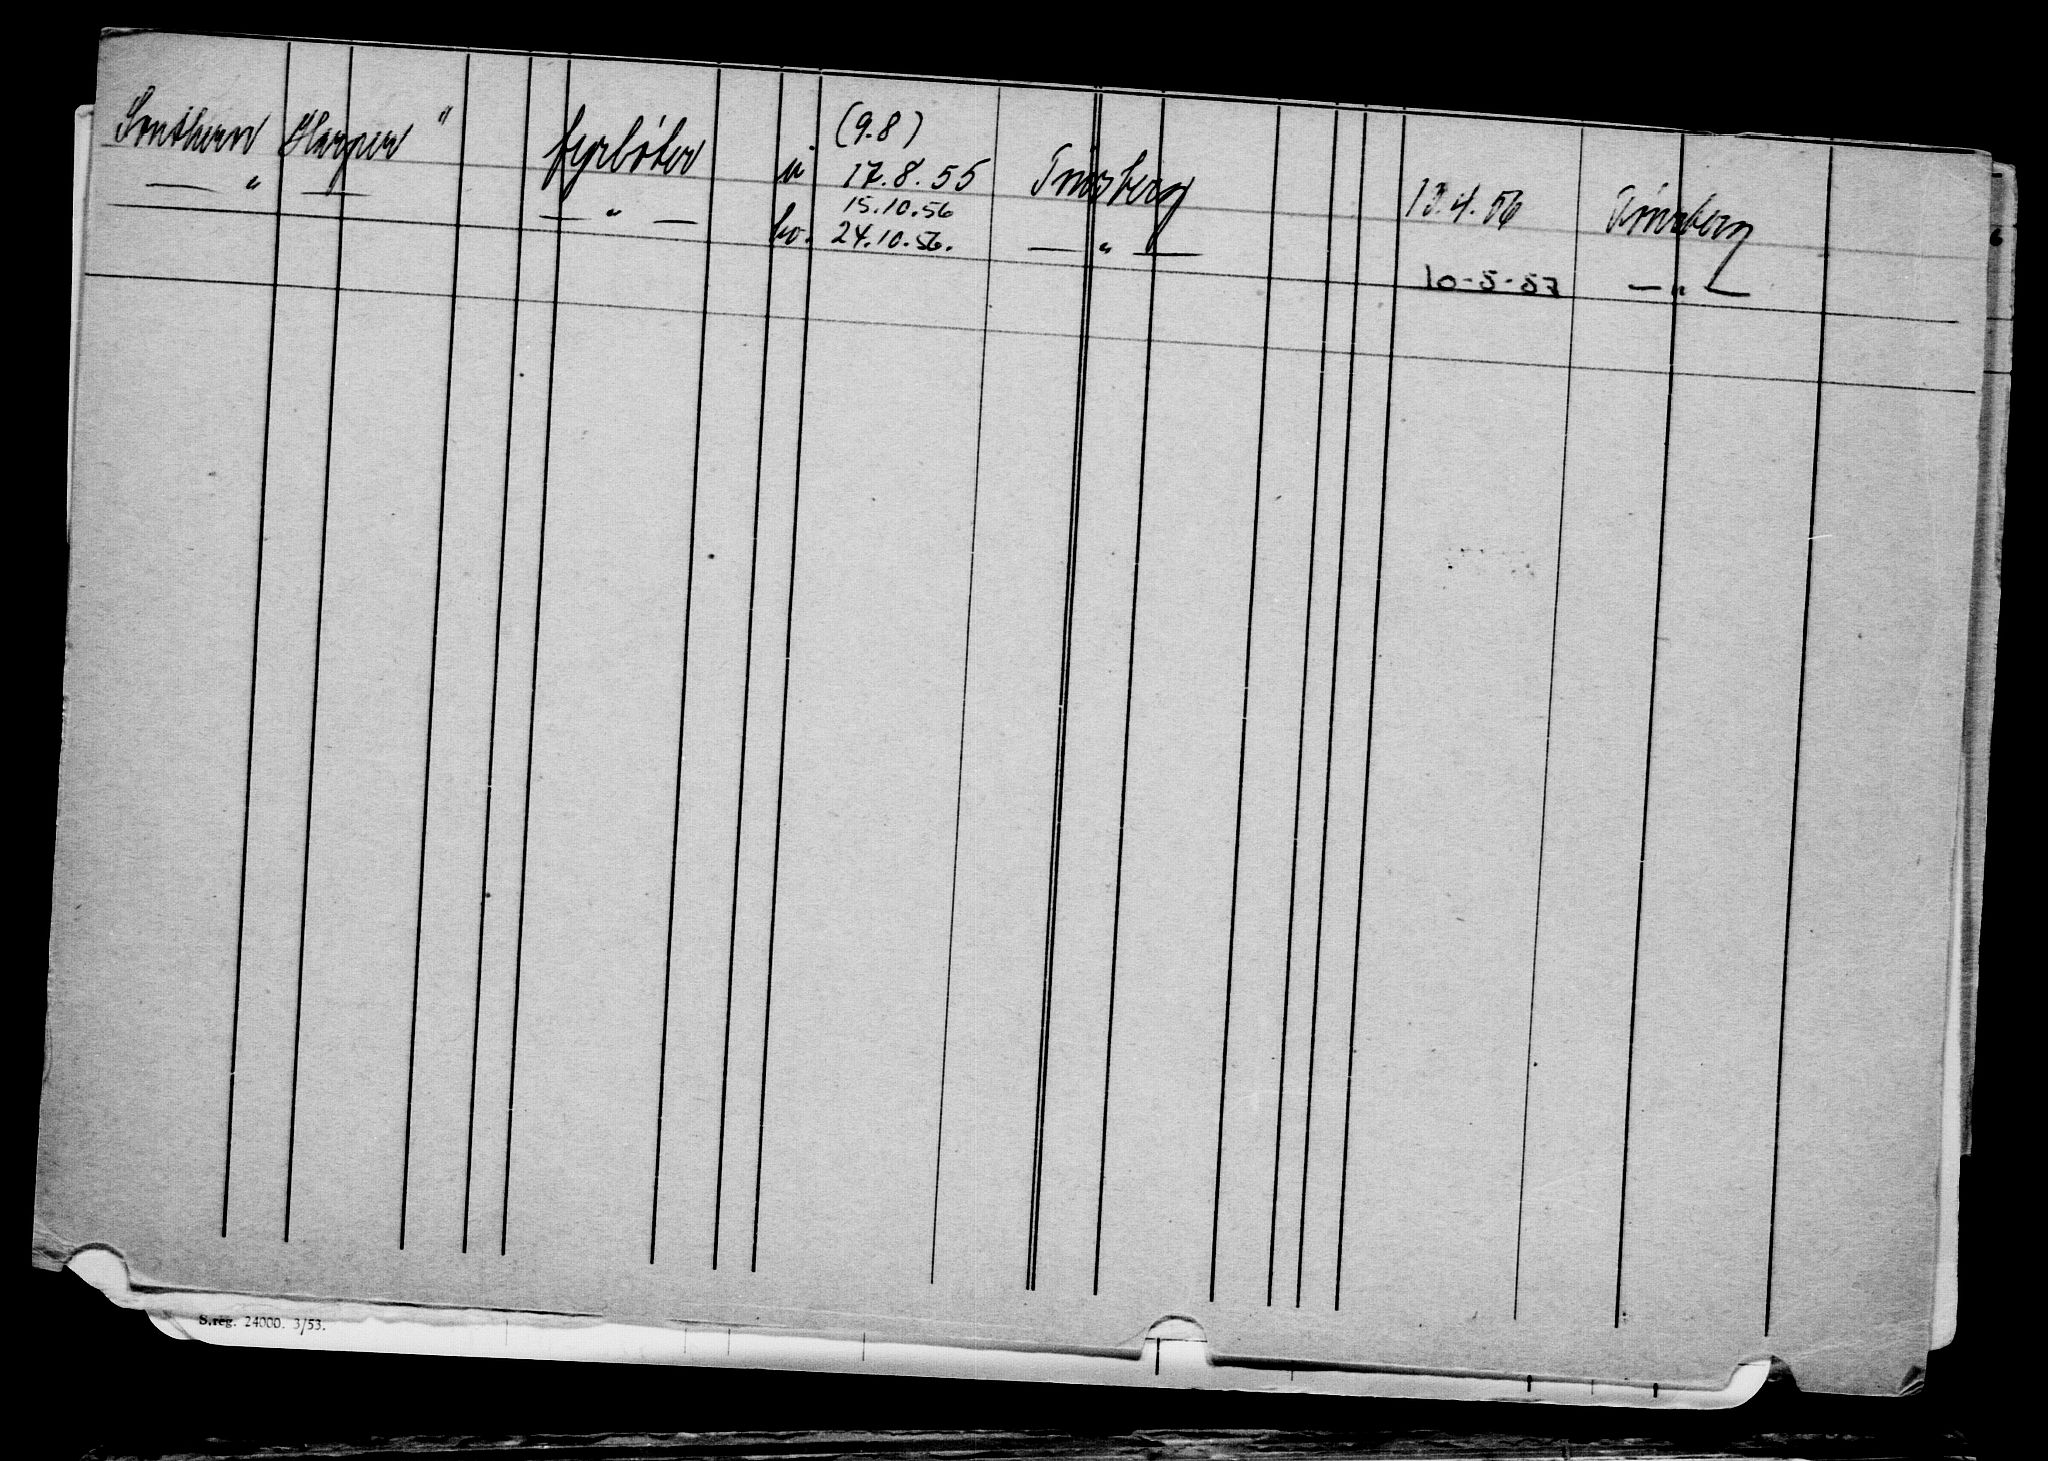 Southern Harper "
fyrbøter u (9.8) 17.8.55 Tønsberg 13.4.56 Tønsberg
— " — — " — ho. 15.10.56 24.10.56. — " — 10-5-57 — " —
S.reg. 24000. 3/53.